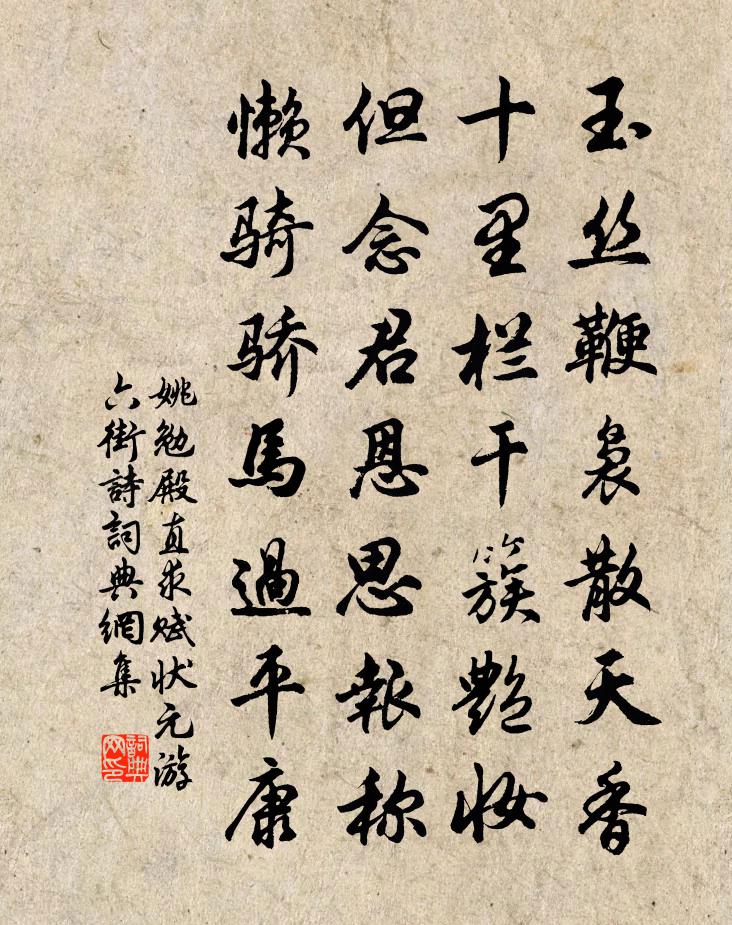 玉丝鞭袅散天香
十里栏干簇艳妆
但念君恩思报称
懒骑骄马过平康
姚勉殿直求赋状元游
六街詩詞典網集
詞典网印